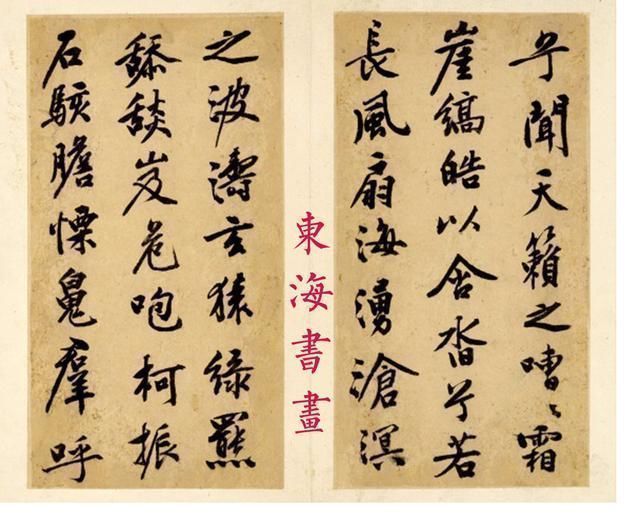 兮聞天籟之嘈〻霜
崖縞皓以合沓兮若
長風扇海湧滄溟
東海書畫
之波濤玄猿綠羆
舔舕岌危咆柯振
石駭膽慄魄羣呼